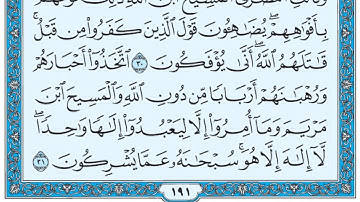 بِأَفْوَٰهِهِمْ ۖ يُضَـٰهِـُٔونَ قَوْلَ ٱلَّذِينَ كَفَرُوا۟ مِن قَبْلُ ۚ
قَـٰتَلَهُمُ ٱللَّهُ ۚ أَنَّىٰ يُؤْفَكُونَ ٣٠ ٱتَّخَذُوٓا۟ أَحْبَارَهُمْ
وَرُهْبَـٰنَهُمْ أَرْبَابًا مِّن دُونِ ٱللَّهِ وَٱلْمَسِيحَ ٱبْنَ
مَرْيَمَ وَمَآ أُمِرُوٓا۟ إِلَّا لِيَعْبُدُوٓا۟ إِلَـٰهًا وَٰحِدًا ۖ
لَّآ إِلَـٰهَ إِلَّا هُوَ ۚ سُبْحَـٰنَهُۥ عَمَّا يُشْرِكُونَ ٣١
١٩١